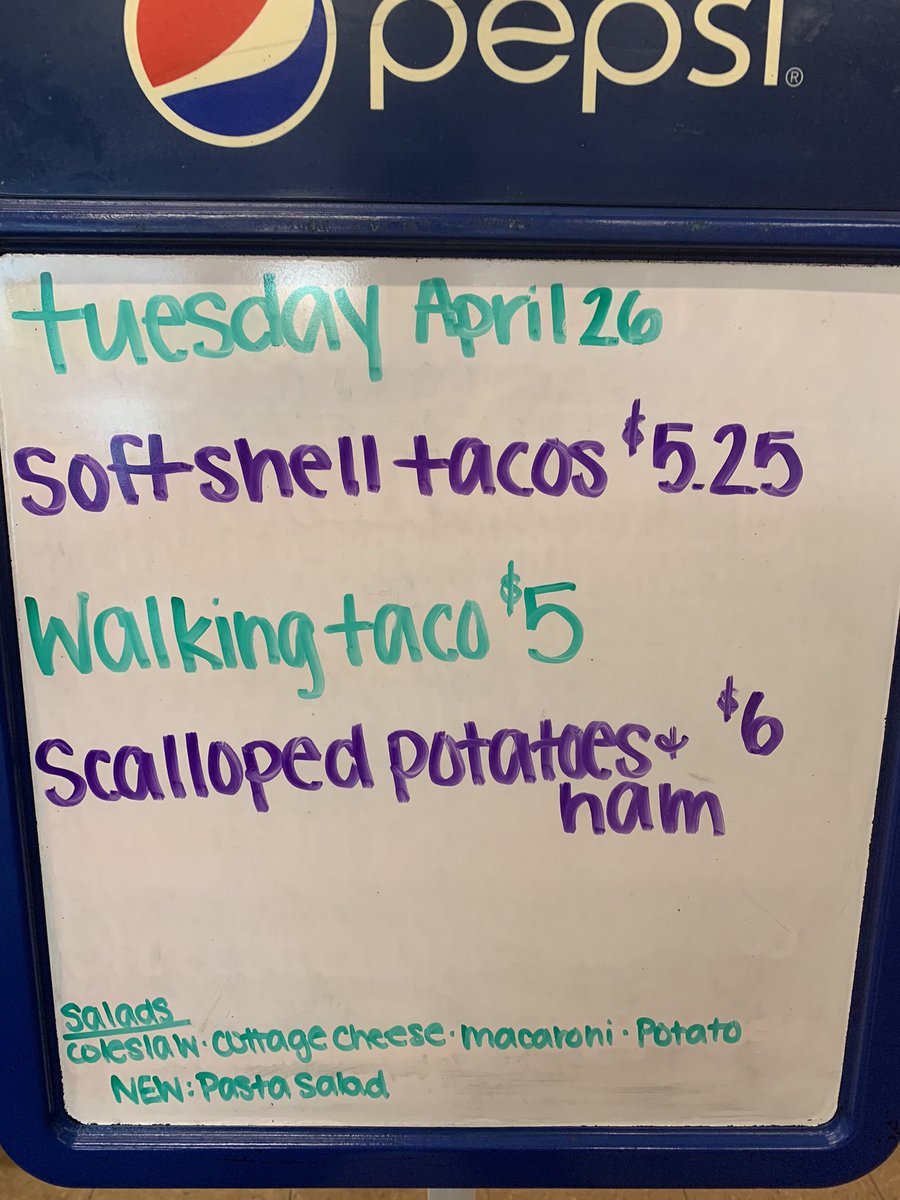 pepsi®
tuesday April 26
Softshell tacos $5.25
Walking taco $5
Scalloped potatoes & $6
ham
Salads
coleslaw · cottage cheese · macaroni · Potato
NEW: Pasta Salad